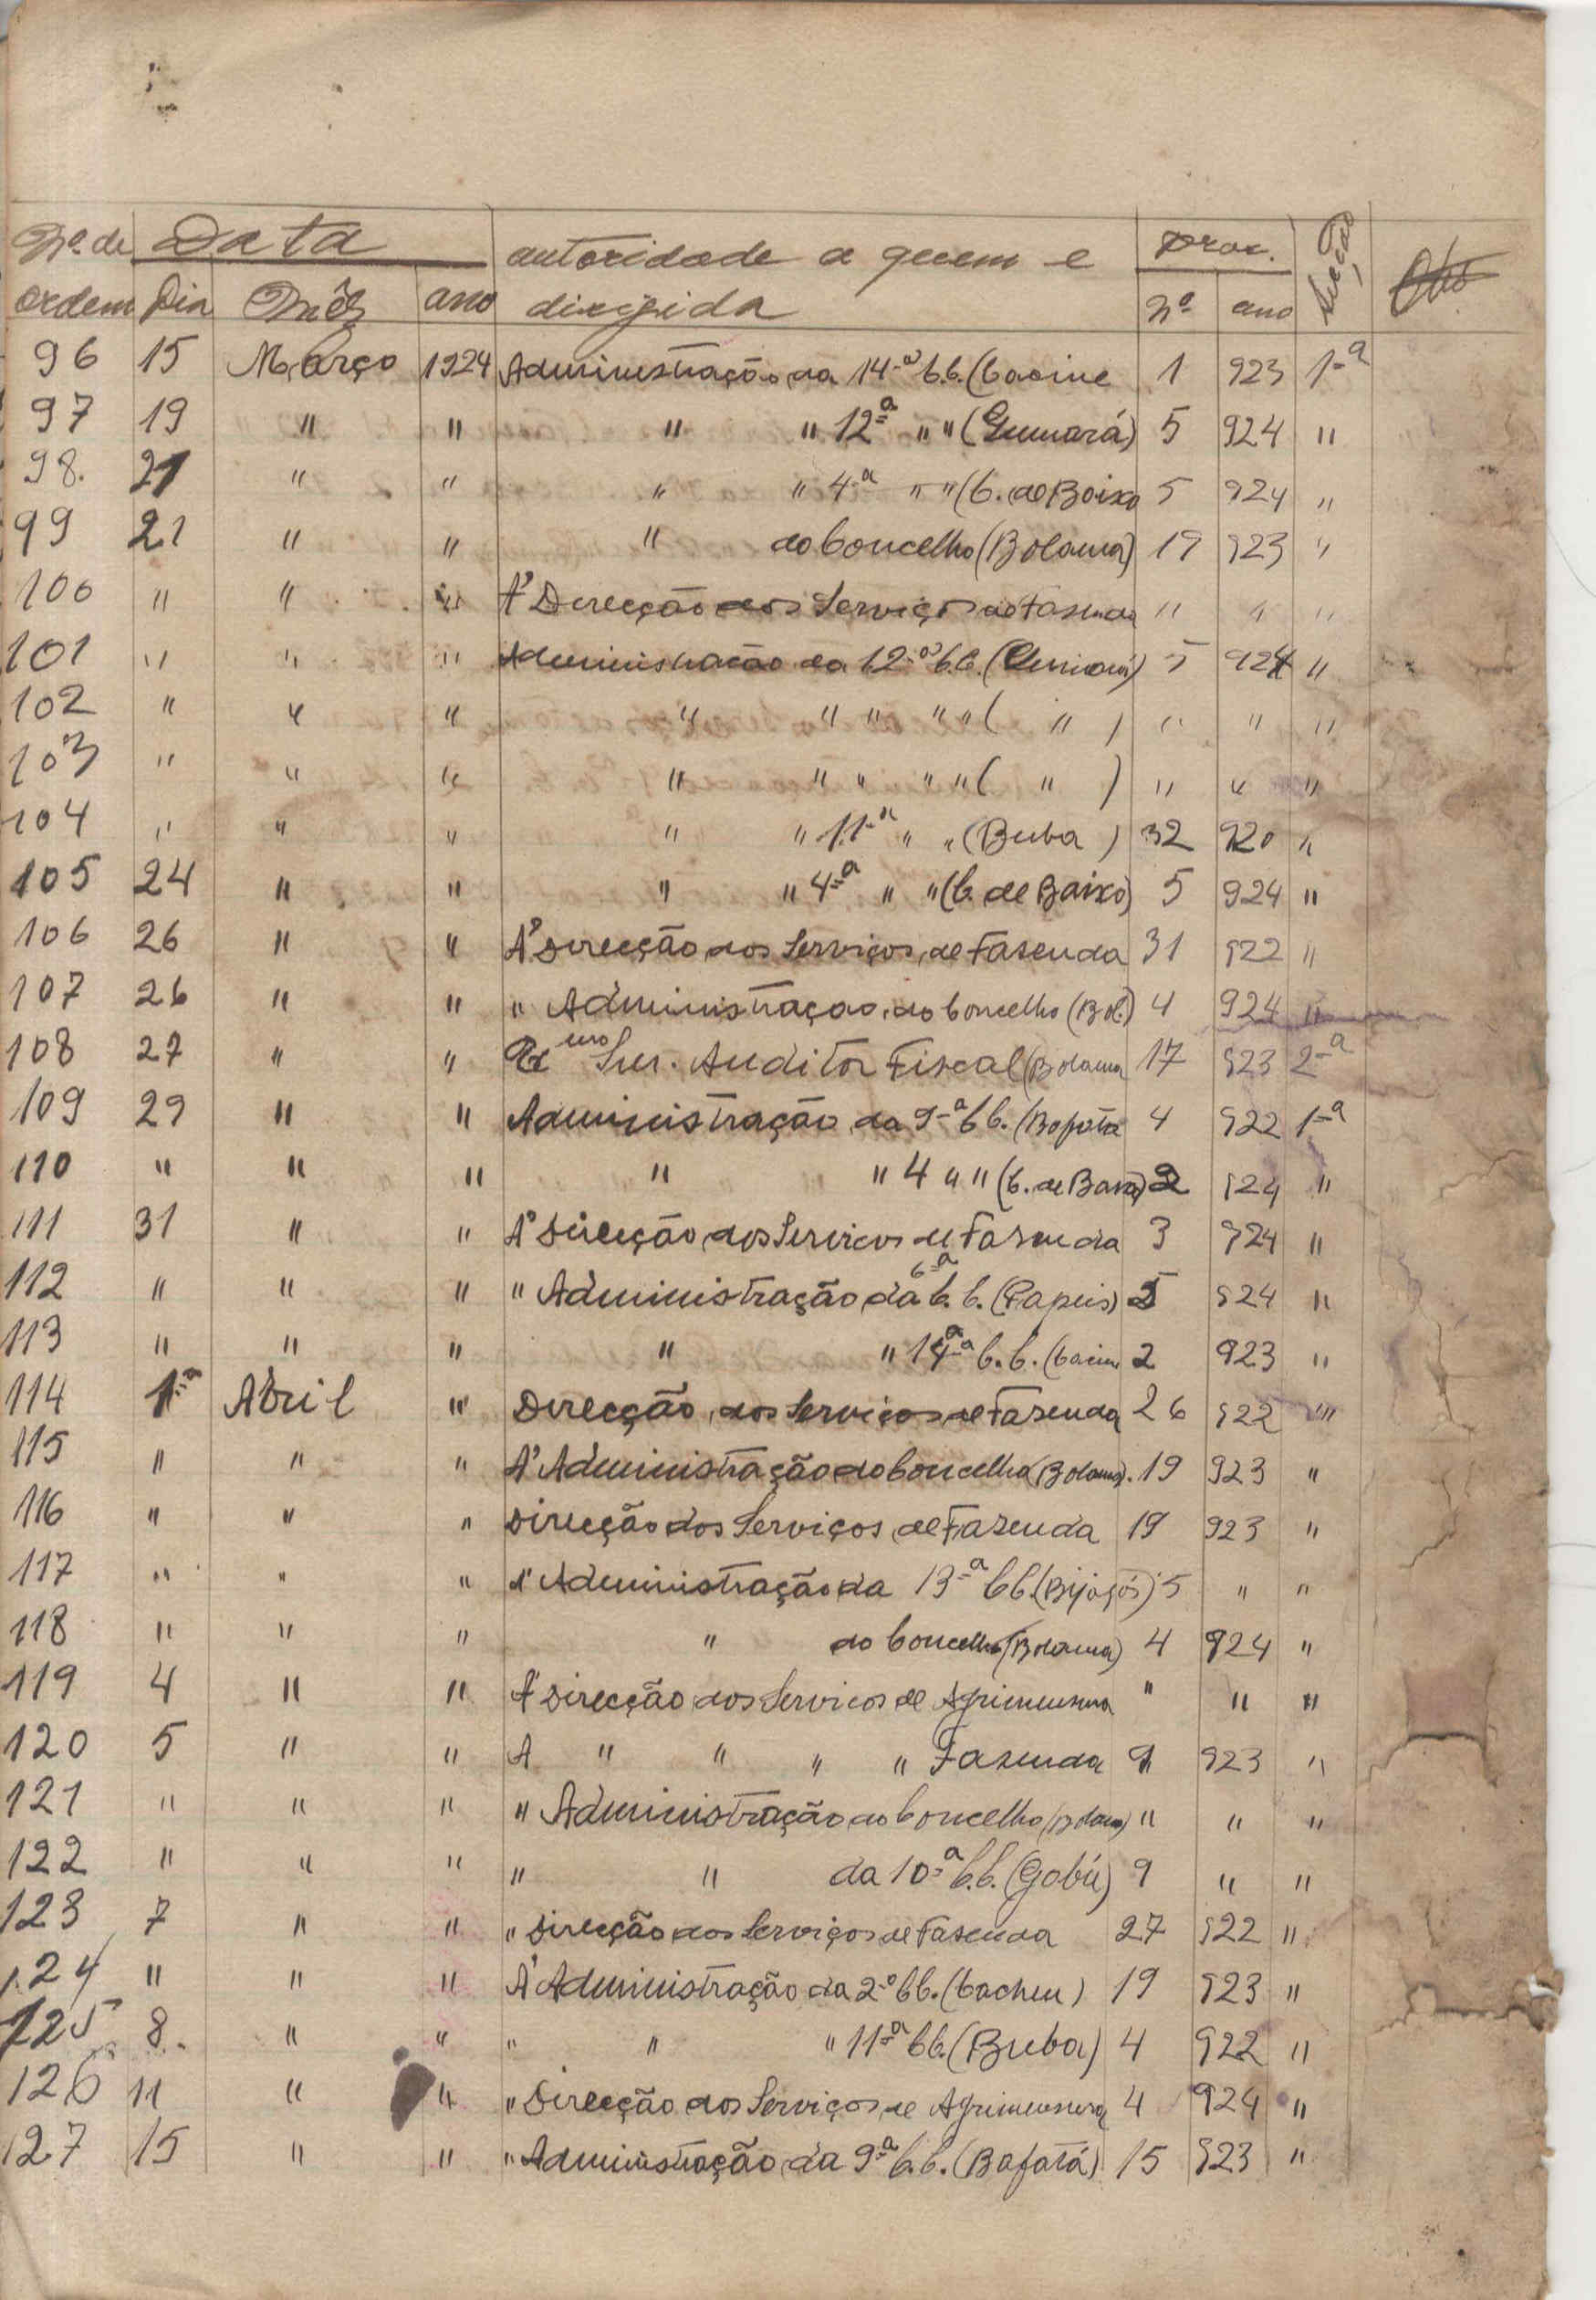 Nº. de Data autoridade a quem e Proc. Secção Obs
ordem Dia Mês ano dirigida Nº ano
96 15 Março 1924 Administração da 14-ª C.C. (Cacine 1 923 1-ª
97 19 " " " " 12ª " " (Gumará) 5 924 "
98. 21 " " " " 4-ª " " (C. de Baixo 5 924 "
99 21 " " " do Concelho (Bolama) 19 923 "
100 " " " Á Direcção dos Serviços de Fasenda " " "
101 " " " Administração da 12-ª C.C. (Cumará) 5 924 "
102 " " " " " " " " ( " ) " " "
103 " " " " " " " " ( " ) " " "
104 " " " " " 11-ª " " (Buba ) 32 920 "
105 24 " " " " 4-ª " " (C. de Baixo) 5 924 "
106 26 " " Á Direcção dos Serviços de Fasenda 31 922 "
107 26 " " " Administração do Concelho (Bol.) 4 924 "
108 27 " " Snr. Auditor Fiscal (Bolama 17 923 2-ª
109 29 " " Administração da 9-ª C.C. (Bafatá 4 922 1-ª
110 " " " " " 4 " " (C. de Baixo) 2 924 "
111 31 " " Á Direcção dos Servicos de Fazenda 3 924 "
112 " " " " Administração da 6ª C.C. (Papeis) 5 924 "
113 " " " " " 14ª C.C. (Cacine 2 923 "
114 1-º Abril " Direcção dos Serviços de Fazenda 26 922 "
115 " " " Á Administração do Concelho (Bolama). 19 923 "
116 " " " Direcção dos Serviços de Fazenda 19 923 "
117 " " " Á Administração da 13-ª C.C. (Bijagós) 5 " "
118 " " " " do Concelho (Bolama) 4 924 "
119 4 " " Á Direcção dos Servicos de Agrimensura " " "
120 5 " " A " " " " Fazenda 9 923 "
121 " " " " Administração do Concelho (Bolama) " " "
122 " " " " " da 10-ª C.C. (Gabú) 9 " "
123 7 " " " Direcção dos Serviços de Fasenda 27 922 "
124 " " " Á Administração da 2-ª C.C. (Cacheu) 19 923 "
125 8. " " " " " 11-ª C.C. (Buba) 4 922 "
126 11 " " " Direcção dos Serviços de Agrimensura 4 924 "
127 15 " " " Administração da 9-ª C.C. (Bafatá) 15 923 "